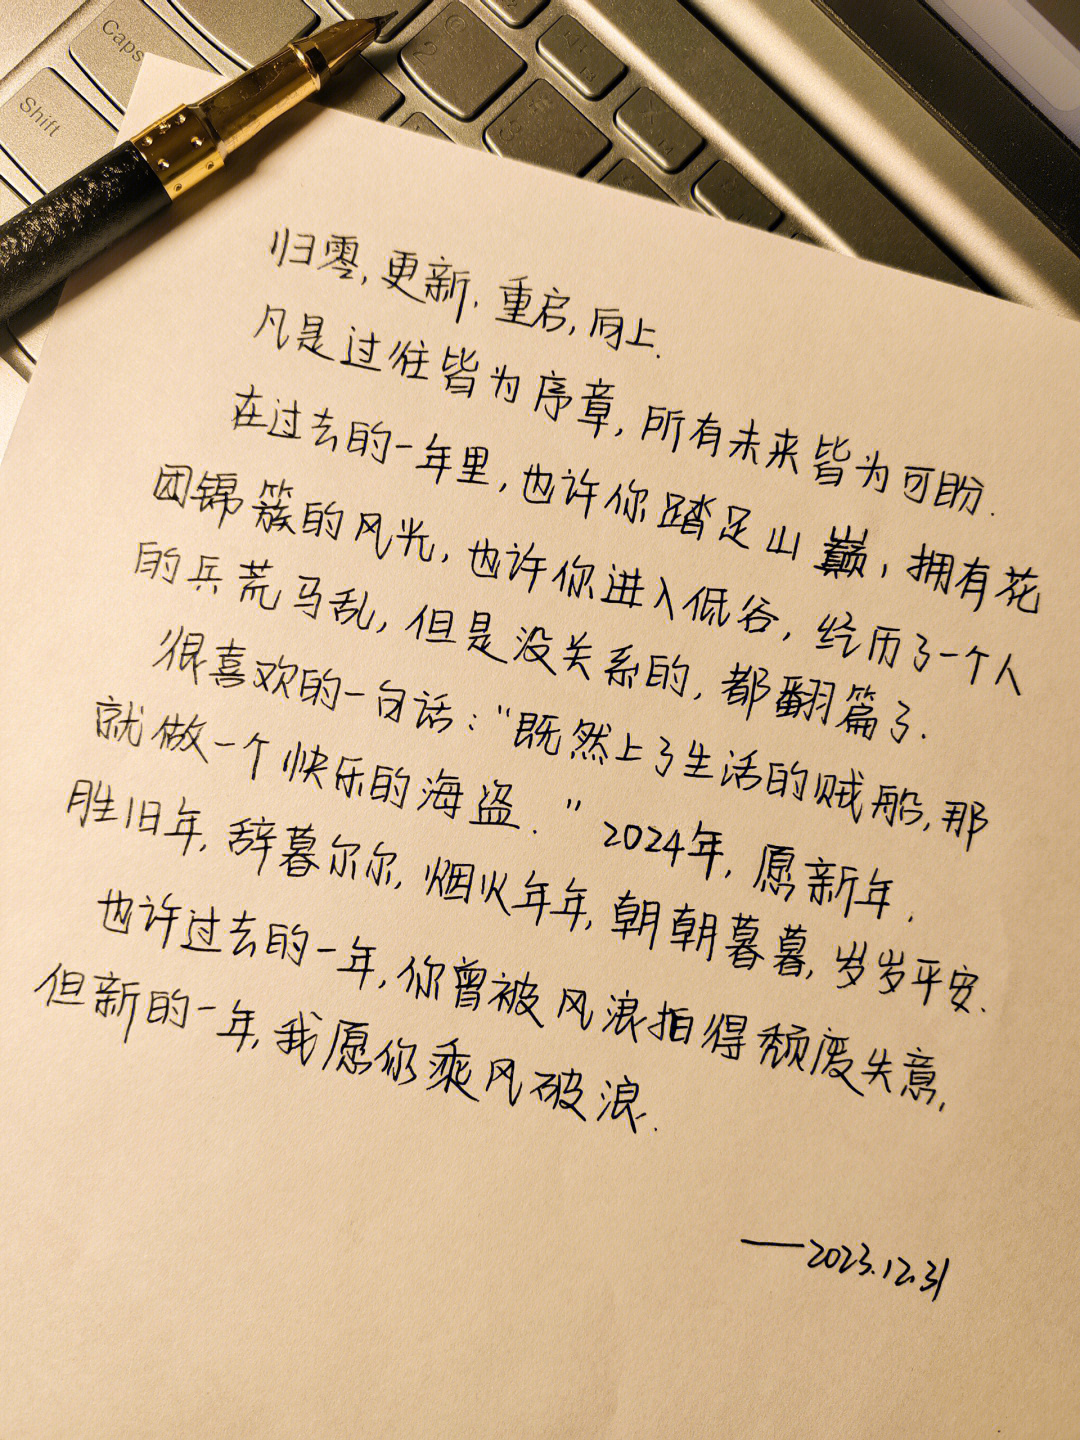 Caps
Shift
2
归零,更新.重启,向上.
凡是过往皆为序章,所有未来皆为可盼.
在过去的一年里,也许你踏足山巅,拥有花
团锦簇的风光,也许你进入低谷,经历了一个人
的兵荒马乱,但是没关系的,都翻篇了.
很喜欢的一句话:“既然上了生活的贼船,那
就做一个快乐的海盗.”2024年,愿新年.
胜旧年,辞暮尔尔,烟火年年,朝朝暮暮,岁岁平安.
也许过去的一年,你曾被风浪拍得颓废失意,
但新的一年,我愿你乘风破浪.
——2023.12.31